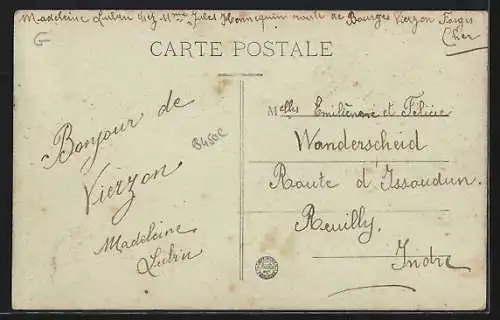 Madeleine Lubin chez Mme Jules Hennequin route de Bourges Vierzon Forges
Cher
G
CARTE POSTALE
Bonjour de
Vierzon
Madeleine
Lubin
Melles Emilienne et Félicie
Wanderscheid
Route d Issoudun.
Reuilly.
Indre